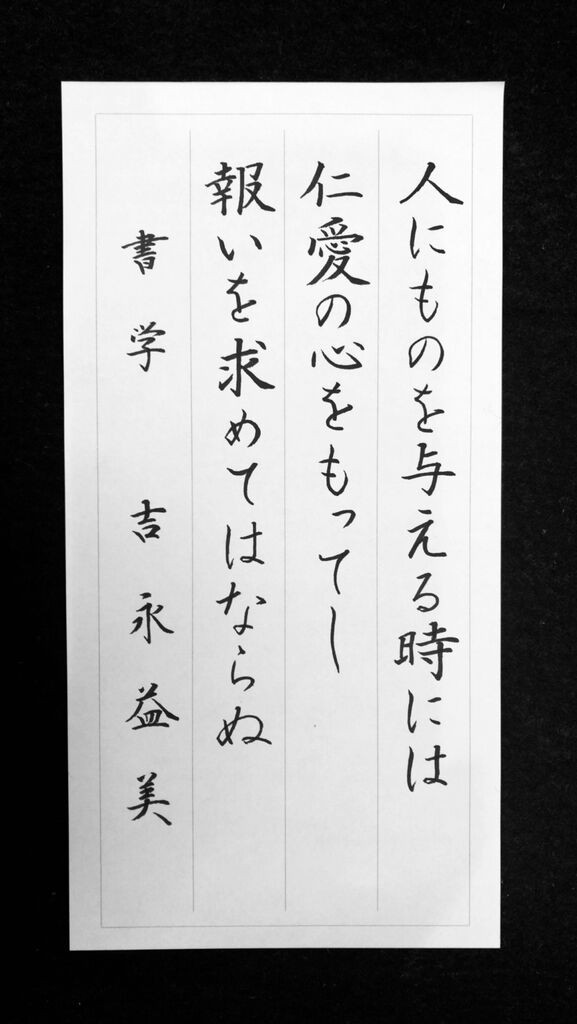 人にものを与える時には
仁愛の心をもってし
報いを求めてはならぬ
書学 吉永益美